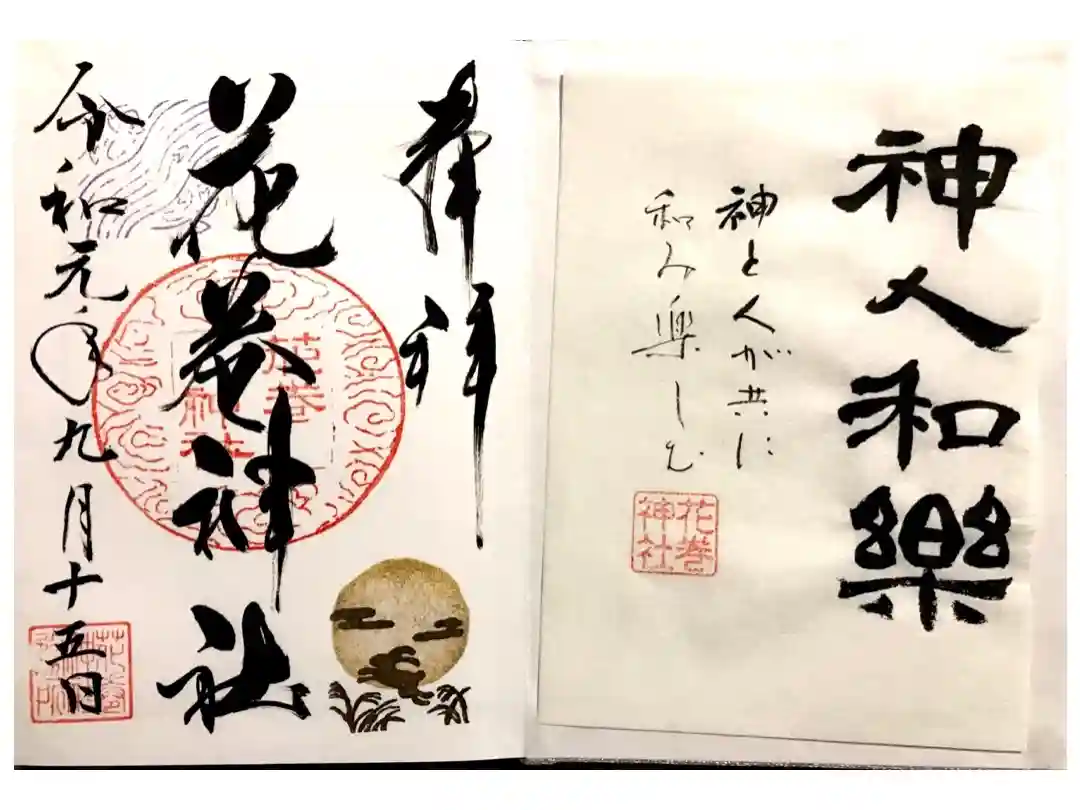 神人和樂
神と人が共に
和み楽しむ
花巻
神社
奉拝
花巻神社
花巻
神社
令和元年九月十五日